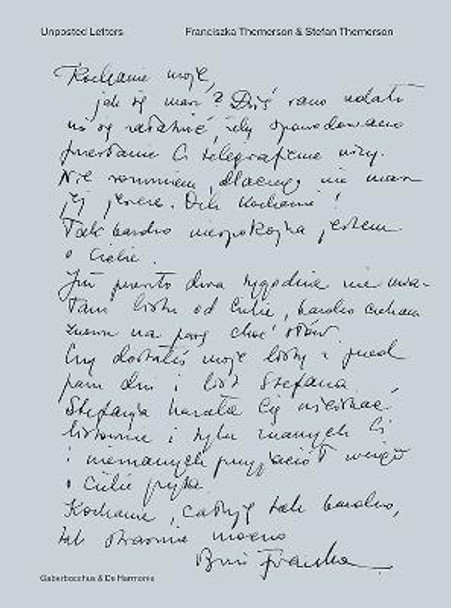 Unposted Letters
Franciszka Themerson & Stefan Themerson
Kochanie moje,
jak się masz? Dziś rano udało
mi się załatwić, żeby spowodowano
przesłanie Ci telegraficzne wizy.
Nie rozumiem, dlaczego nie masz
jej jeszcze. Och kochanie!
Tak bardzo niespokojna jestem
o Ciebie.
Już prawie dwa tygodnie nie mia-
łam listu od Ciebie, bardzo czekam
znowu na parę choć słów.
Czy dostałeś moje listy z przed
paru dni i list Stefana
Stefania kazała Cię uściskać
listownie i tylu znanych Ci
i nieznanych przyjaciół wciąż
o Ciebie pyta.
Kochanie, całuję tak bardzo,
tak strasznie mocno
Franka
Gaberbocchus & De Harmonie